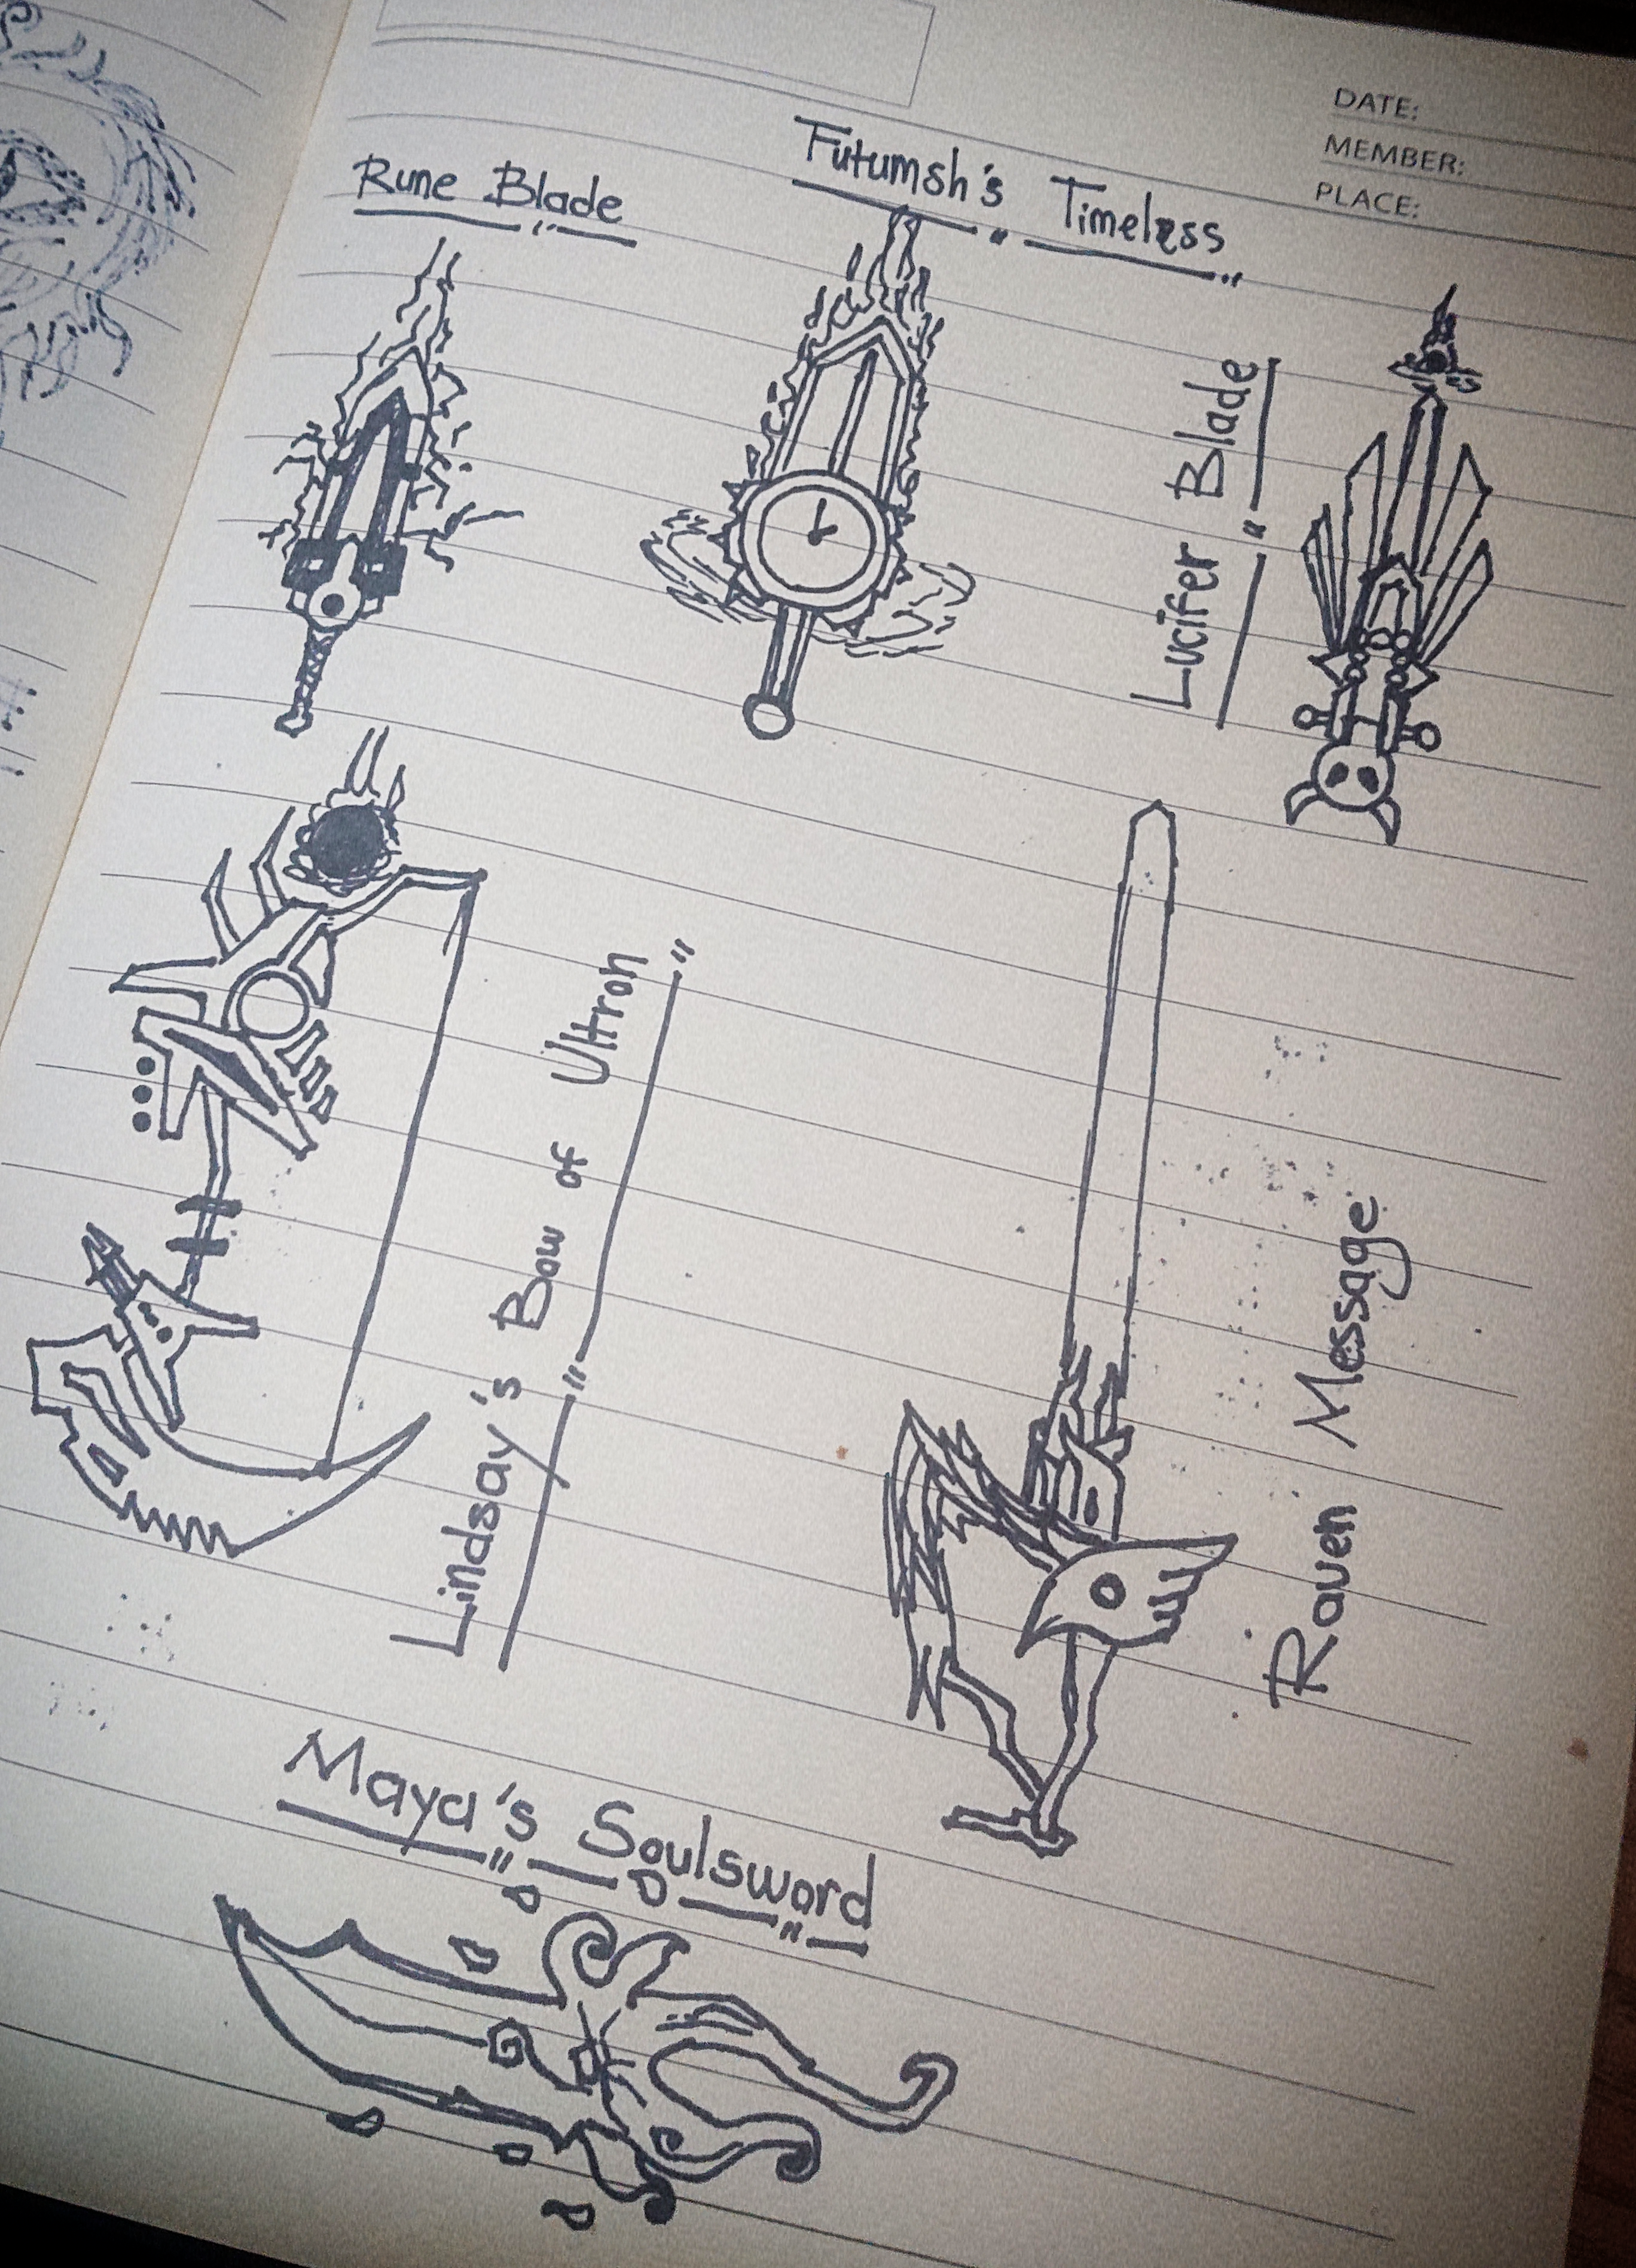 DATE:
MEMBER:
PLACE:
Rune Blade
Futumsh's Timeless
Lucifer Blade
Lindsay's Bow of Ultron
Raven Message
Maya's Soulsword